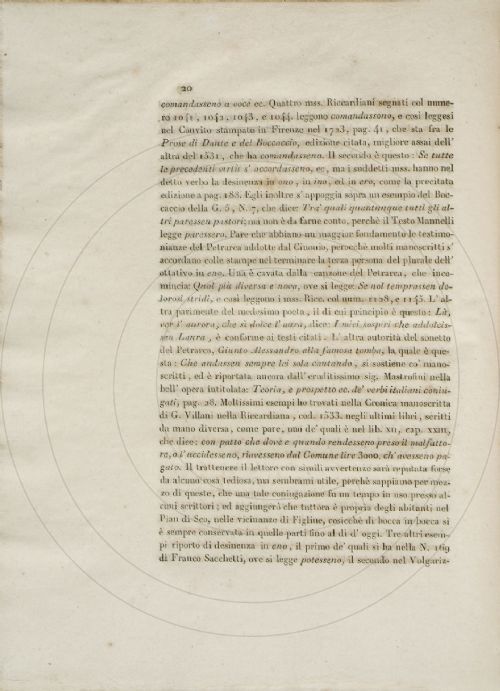 20
comandasseno a voce ec. Quattro mss. Riccardiani segnati col nume-
ro 1041, 1042, 1043, e 1044. leggono comandassono, e così leggesi
nel Convito stampato in Firenze nel 1723, pag. 41, che sta fra le
Prose di Dante e del Boccaccio, edizione citata, migliore assai dell'
altra del 1531, che ha comandasseno. Il secondo è questo: Se tutte
le precedenti virtù s'accordasseno, ec, ma i suddetti mss. hanno nel
detto verbo la desinenza in ono, in ino, ed in ero, come la precitata
edizione a pag. 188. Egli inoltre s'appoggia sopra un esempio del Boc-
caccio della G. 5, N. 7, che dice: Tra' quali quantunque tutti gli al-
tri paressen pastori; ma non è da farne conto, perchè il Testo Mannelli
legge paressero. Pare che abbiano un maggior fondamento le testimo-
nianze del Petrarca addotte dal Cinonio, perocchè molti manoscritti s'
accordano colle stampe nel terminare la terza persona del plurale dell'
ottativo in eno. Una è cavata dalla canzone del Petrarca, che inco-
mincia: Qual più diversa e nova, ove si legge: Se nol temprassen do-
lorosi stridi, e così leggono i mss. Ricc. col num. 1128, e 1145. L'al-
tra parimente del medesimo poeta, il di cui principio è questo: Là,
ver l'aurora, che sì dolce l'aura, dice: I miei sospiri che addolcis-
sen Laura, è conforme ai testi citati. L'altra autorità del sonetto
del Petrarca, Giunto Alessandro alla famosa tomba, la quale è que-
sta: Che andassen sempre lei sola cantando, si sostiene co' mano-
scritti, ed è riportata ancora dall'eruditissimo sig. Mastrofini nella
bell'opera intitolata: Teoria, e prospetto ec. de' verbi italiani coniu-
gati, pag. 28. Moltissimi esempi ho trovati nella Cronica manoscritta
di G. Villani nella Riccardiana, cod. 1533. negli ultimi libri, scritti
da mano diversa, come pare, uno de' quali è nel lib. XII, cap. XXIII,
che dice: con patto che dove e quando rendesseno preso il malfatto-
re, o l'uccidesseno, riavesseno dal Comune lire 3000, ch'avesseno pa-
gato. Il trattenere il lettore con simili avvertenze sarà reputata forse
da alcuno cosa tediosa, ma sembrami utile, perchè sappiamo per mez-
zo di queste, che una tale coniugazione fu un tempo in uso presso al-
cuni scrittori; ed aggiungerò che tuttora è propria degli abitanti nel
Pian di Sco, nelle vicinanze di Figline, cosicchè di bocca in bocca si
è sempre conservata in quelle parti fino al dì d'oggi. Tre altri esem-
pi riporto di desinenza in eno, il primo de' quali si ha nella N. 169
di Franco Sacchetti, ove si legge potesseno, il secondo nel Volgariz-